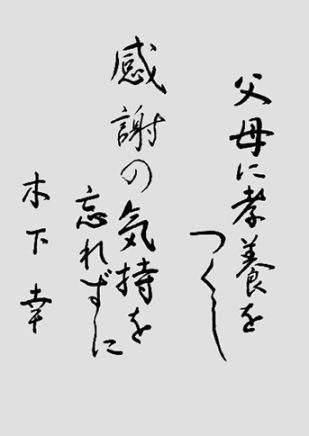 父母に孝養を
つくし
感謝の気持を
忘れずに
木下幸